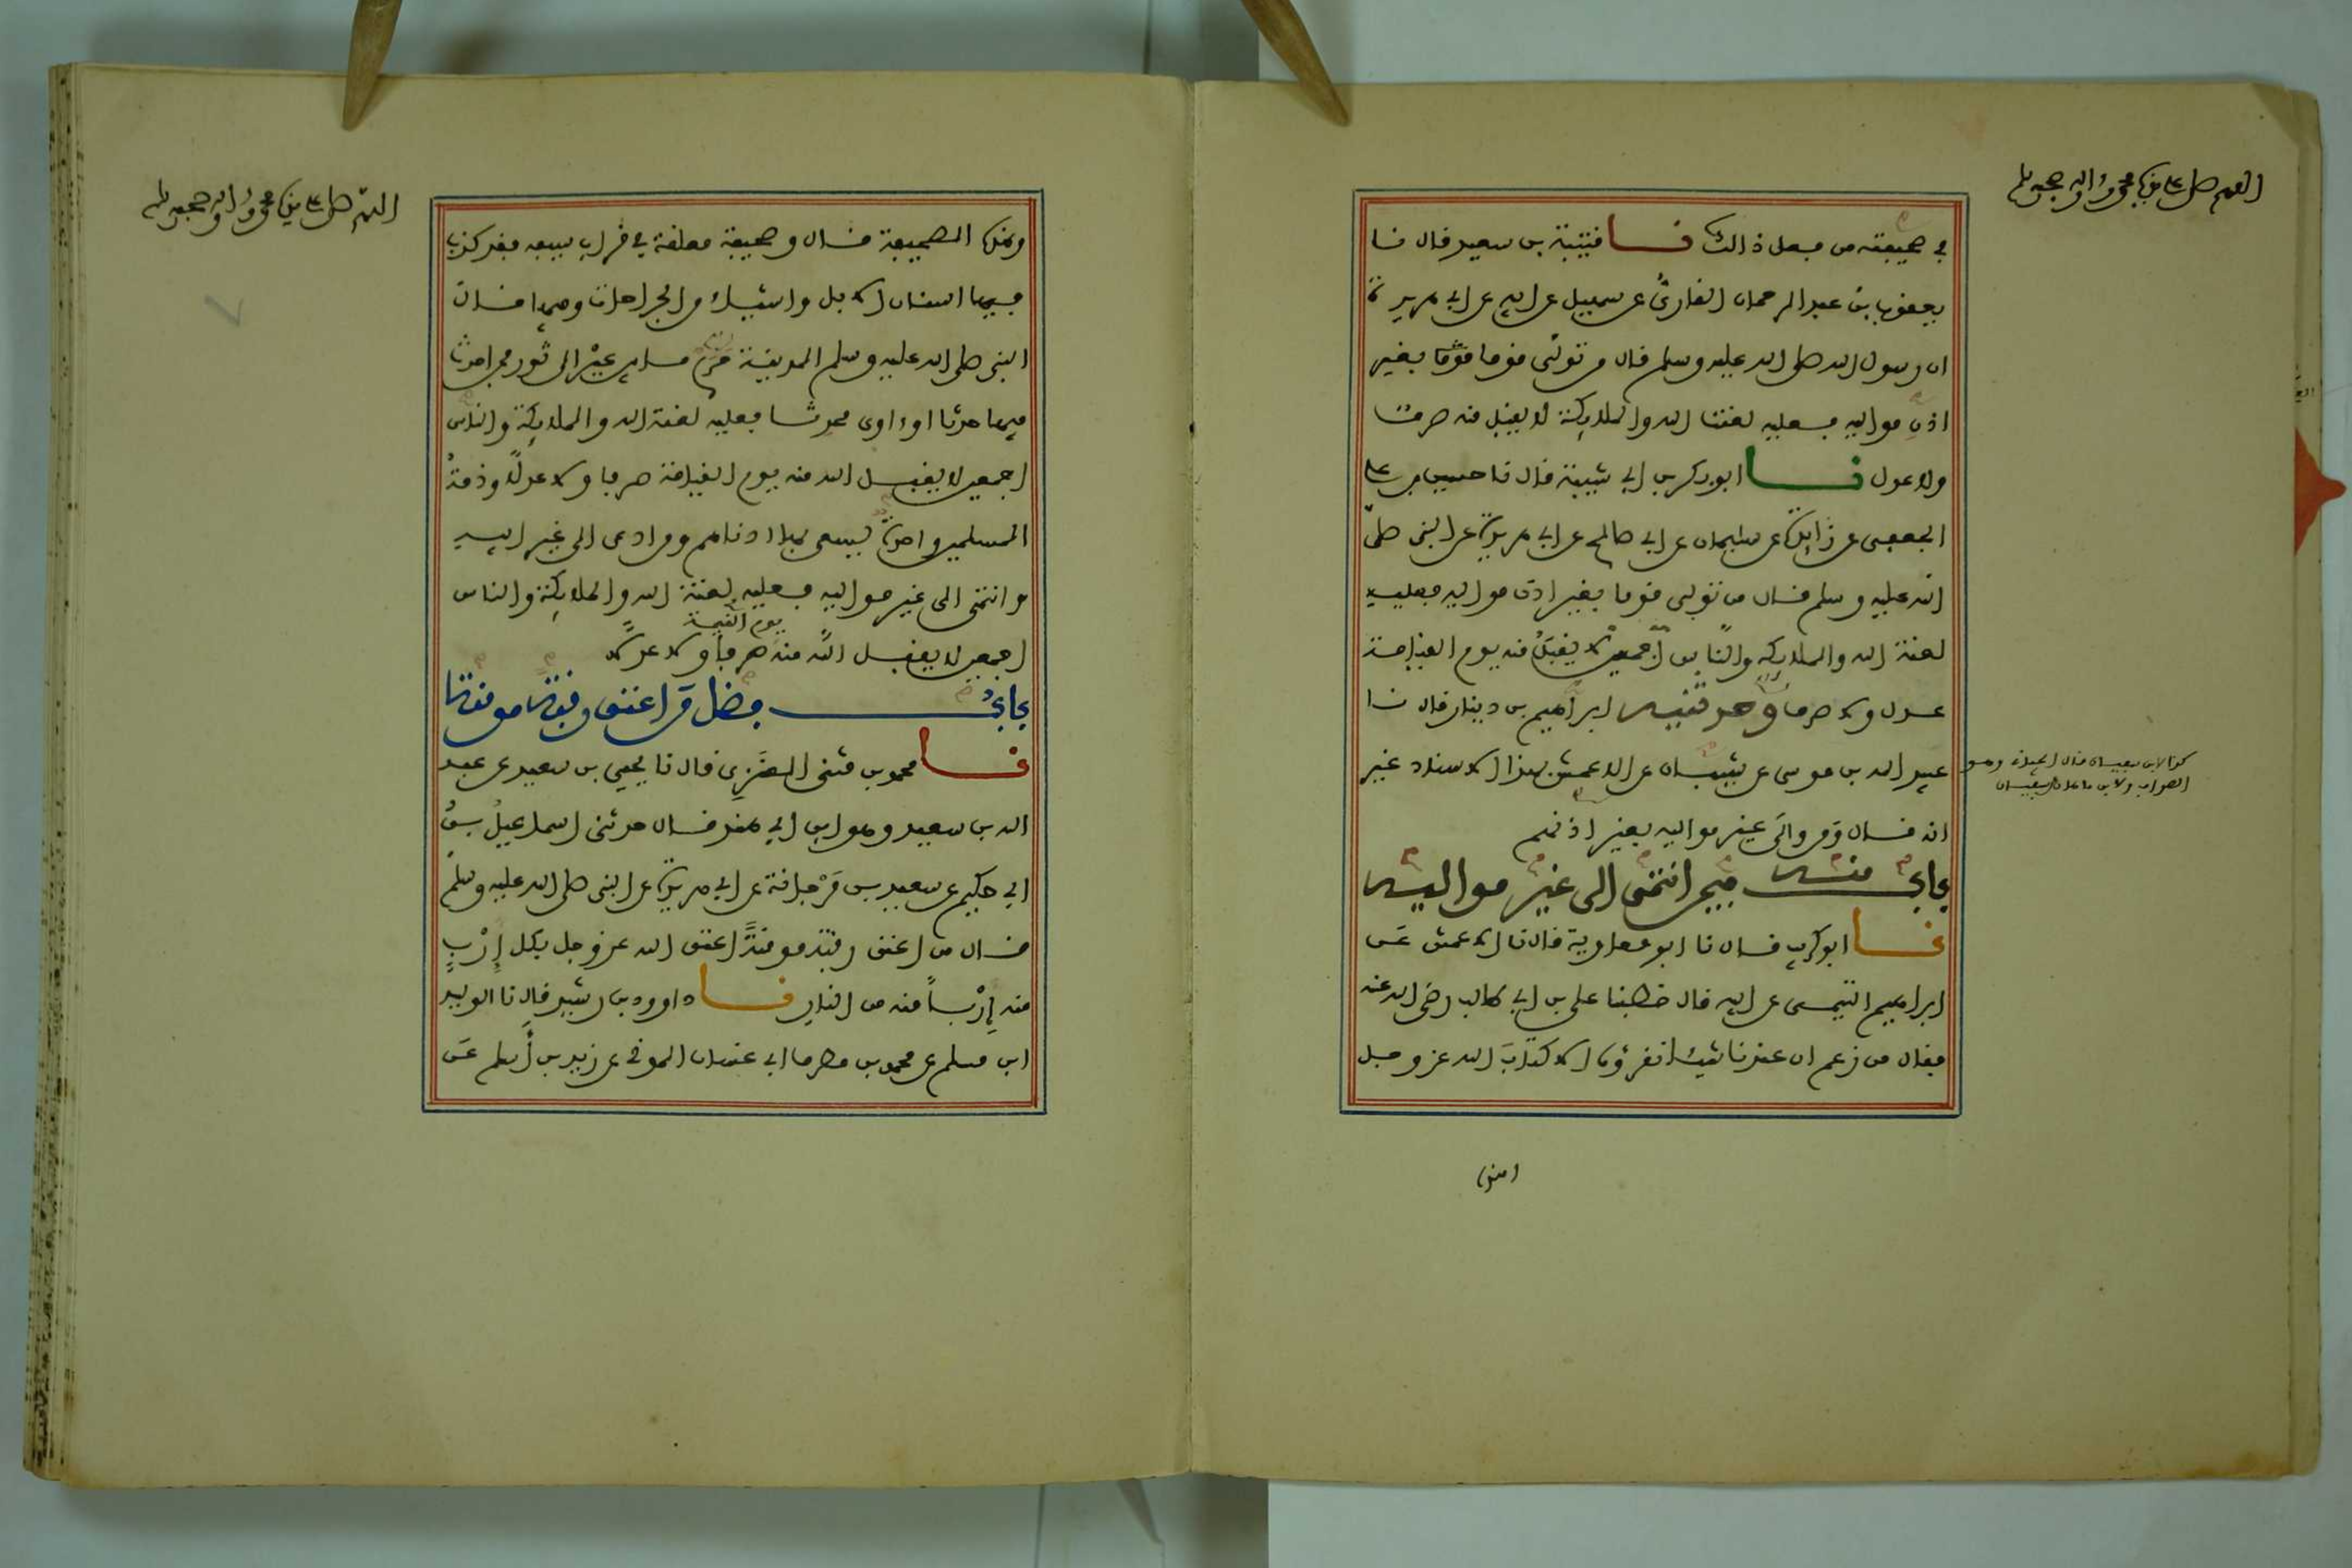 اللهم صل على نبيك محمد وءاله وصحبه وسلم
في صحيفته من فعل ذالك نا قتيبة بن سعيد قال نا
يعقوب بن عبد الرحمان القارئ عن سهيل عن ابيه عن ابي هريرة
ان رسول الله صلى الله عليه وسلم قال من تولى قوما بغير
اذن مواليه فعليه لعنة الله والملايكة لا يقبل منه صرف
ولا عدل نا ابو بكر بن ابي شيبة قال نا حسين بن علي
الجعفي عن زايدة عن سليمان عن ابي صالح عن ابي هريرة عن النبي صلى
الله عليه وسلم قال من تولى قوما بغير اذن مواليه فعليه
لعنة الله والملايكة والناس أجمعين لا يقبل منه يوم القيامة
عدل ولا صرف وحدثنيه ابراهيم بن دينار قال نا
عبيد الله بن موسى عن شيبان عن الاعمش بهذا الاسناد غير
انه قال ومن والى غير مواليه بغير اذنهم
باب منه فيمن انتمى الى غير مواليه
نا ابو كريب قال نا ابو معاوية قال نا الاعمش عن
ابراهيم التيمي عن ابيه قال خطبنا علي بن ابي طالب رضي الله عنه
فقال من زعم ان عندنا شيئا نقرؤه الا كتاب الله عز وجل
كذا لابن سفيان قال الجياني وهو
الصواب ولابن ماهان سفيان
اللهم صل على نبيك محمد وءاله وصحبه وسلم
وهذه الصحيفة قال وصحيفة معلقة في قراب سيفه فقد كذب
فيها اسنان الابل واشياء من الجراحات وفيها قال
النبي صلى الله عليه وسلم المدينة حرم ما بين عير الى ثور فمن احدث
فيها حدثا او ءاوى محدثا فعليه لعنة الله والملايكة والناس
اجمعين لا يقبل الله منه يوم القيامة صرفا ولا عدلا وذمة
المسلمين واحدة يسعى بها ادناهم ومن ادعى الى غير ابيه
وانتمى الى غير مواليه فعليه لعنة الله والملايكة والناس
اجمعين لا يقبل الله منه يوم القيمة صرفا ولا عدلا
باب فضل من اعتق رقبة مومنة
نا محمد بن مثنى العنزي قال نا يحيى بن سعيد عن عبد
الله بن سعيد وهو ابن ابي هند قال حدثني اسماعيل بن
ابي حكيم عن سعيد بن مرجانة عن ابي هريرة عن النبي صلى الله عليه وسلم
قال من اعتق رقبة مومنة اعتق الله عز وجل بكل إرب
منه إربا منه من النار نا داوود بن رشيد قال نا الوليد
ابن مسلم عن محمد بن مطرف ابي غسان المدني عن زيد بن أسلم عن